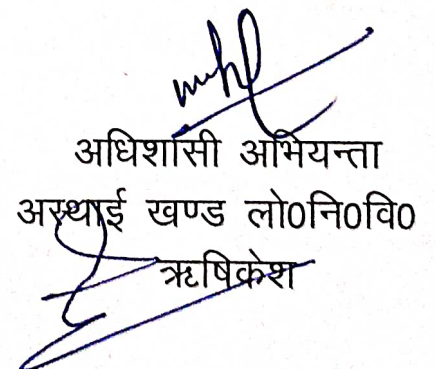 अधिशासी अभियन्ता
अस्थाई खण्ड लो0नि0वि0
ऋषिकेश